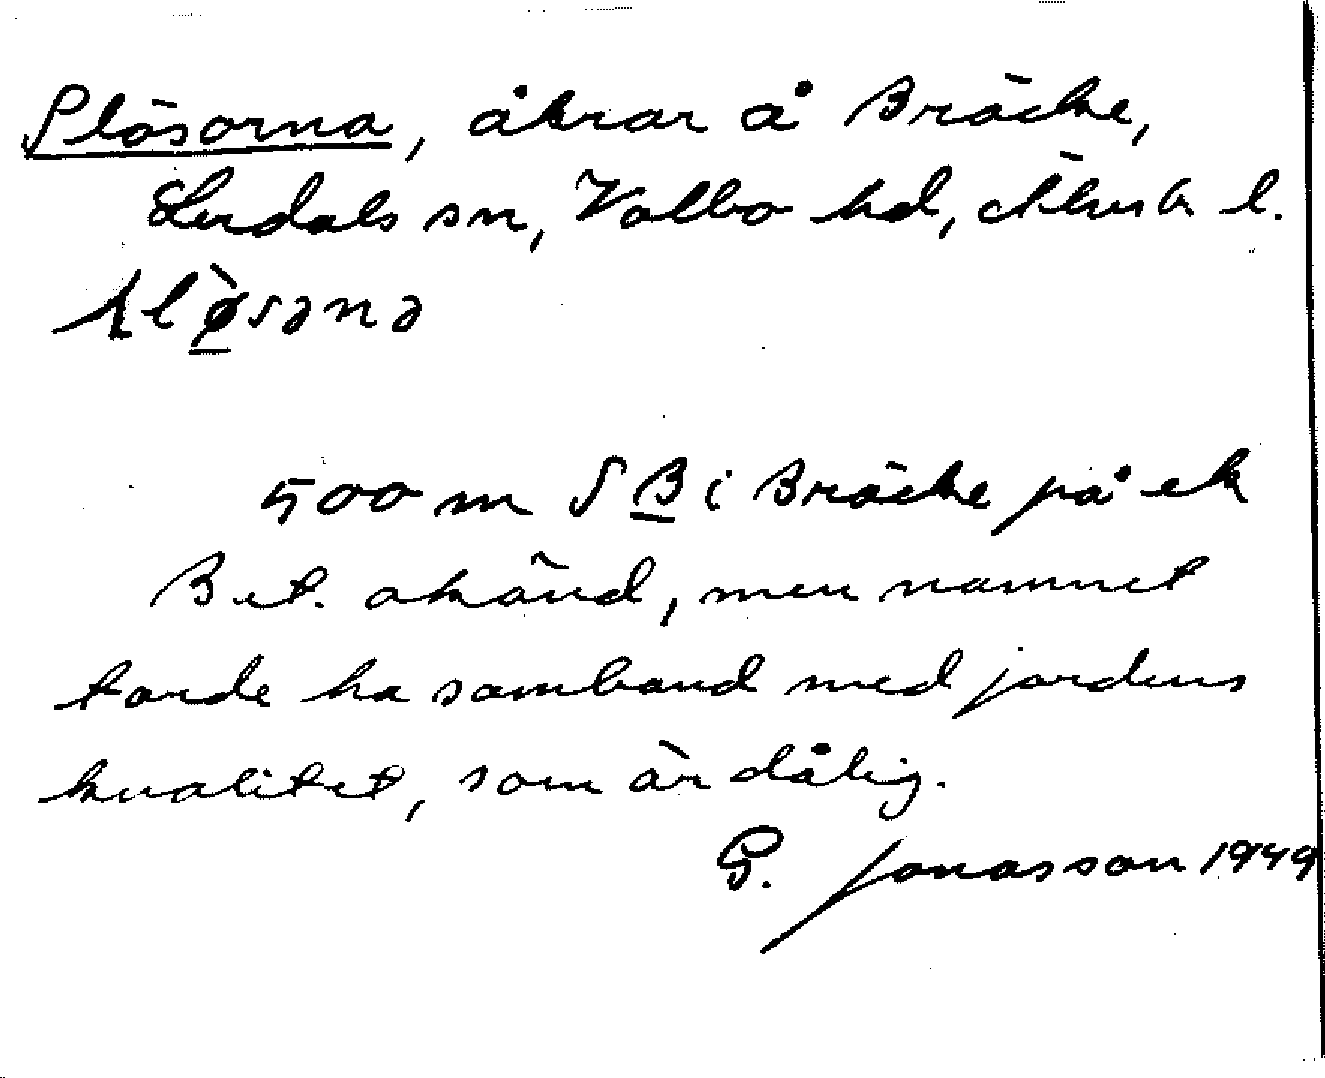 Slösorna, åkrar å Bräcke,
Lerdals sn, Valbo hd, Älvsb l.
500 m S B i Bräcke på ek
Bet. okänd, men namnet
torde ha samband med jordens
kvalitet, som är dålig.
G. Jonasson 1949